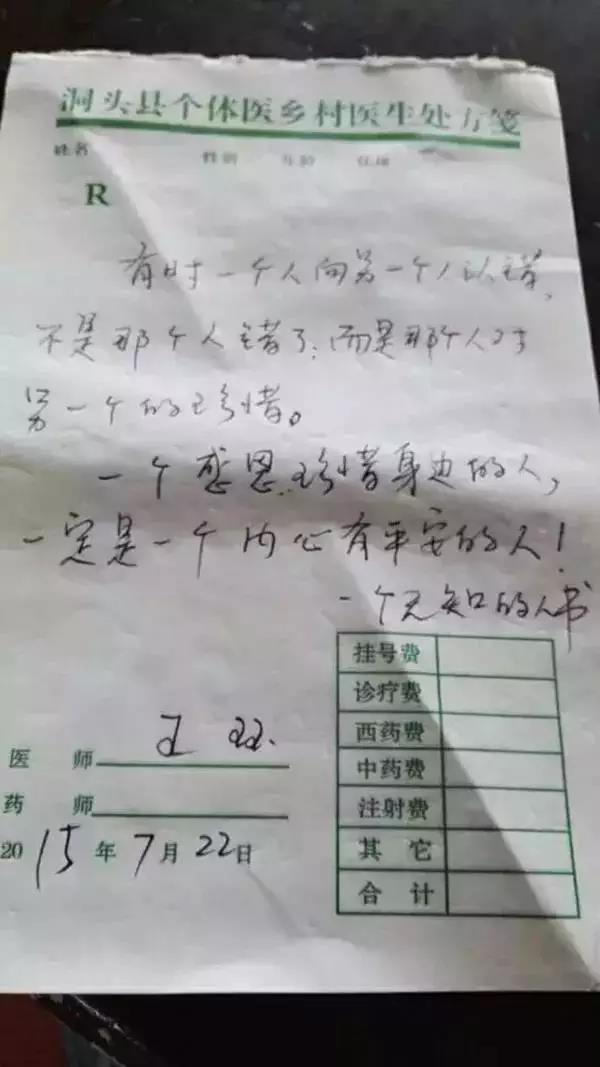 洞头县个体医乡村医生处方笺
姓名 性别 年龄 住址
R
有时一个人向另一个人认错,
不是那个人错了;而是那个人对
另一个的珍惜。
一个感恩珍惜身边的人,
一定是一个内心有平安的人!
一个无知的人书
挂号费
诊疗费
西药费
中药费
注射费
其它
合计
医师 王
药师
2015年7月22日